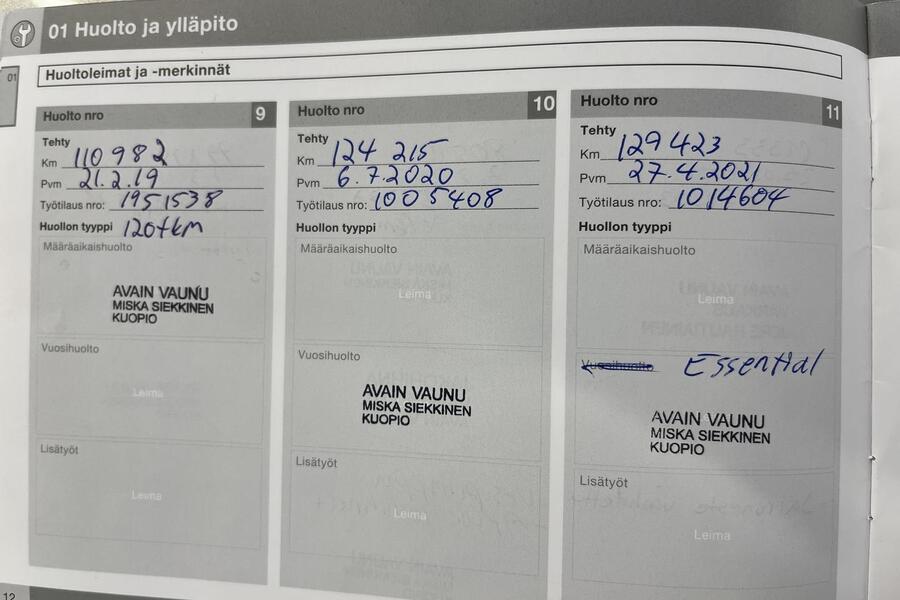 01 Huolto ja ylläpito
01
Huoltoleimat ja -merkinnät
Huolto nro 9
Tehty
Km 110 982
Pvm 21.2.19
Työtilaus nro: 1951538
Huollon tyyppi 120tkm
Määräaikaishuolto
AVAIN VAUNU
MISKA SIEKKINEN
KUOPIO
Vuosihuolto
Leima
Lisätyöt
Leima
Huolto nro 10
Tehty
Km 124 215
Pvm 6.7.2020
Työtilaus nro: 1005408
Huollon tyyppi
Määräaikaishuolto
Leima
Vuosihuolto
AVAIN VAUNU
MISKA SIEKKINEN
KUOPIO
Lisätyöt
Leima
Huolto nro 11
Tehty
Km 129 423
Pvm 27.4.2021
Työtilaus nro: 1014604
Huollon tyyppi
Määräaikaishuolto
Leima
Vuosihuolto Essential
AVAIN VAUNU
MISKA SIEKKINEN
KUOPIO
Lisätyöt
Leima
12